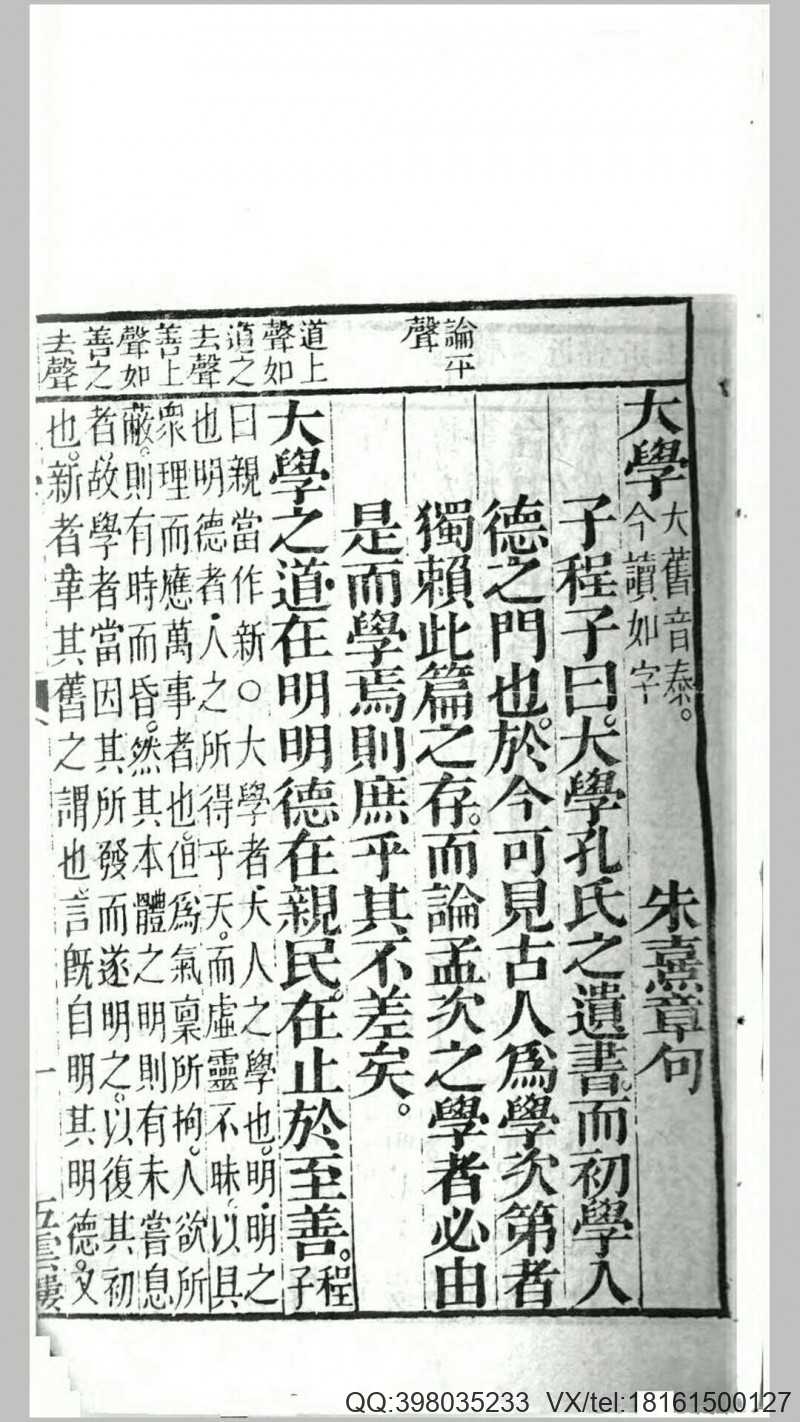 論平
聲
道上
聲如
道之
去聲
善上
聲如
善之
去聲
大學 大舊音泰。
今讀如字
朱熹章句
子程子曰。大學孔氏之遺書。而初學入
德之門也。於今可見古人爲學次第者
獨賴此篇之存。而論孟次之學者必由
是而學焉則庶乎其不差矣。
大學之道在明明德在親民。在止於至善。程
子
曰親當作新○大學者·大人之學也。明·明之
也明德者·人之所得乎天。而虛靈不昧。以具
衆理而應萬事者也。但爲氣稟所拘。人欲所
蔽。則有時而昏。然其本體之明則有未嘗息
者。故學者當因其所發而遂明之。以復其初
也。新者革其舊之謂也言旣自明其明德。又
一
五雲樓
QQ:398035233 VX/tel:18161500127